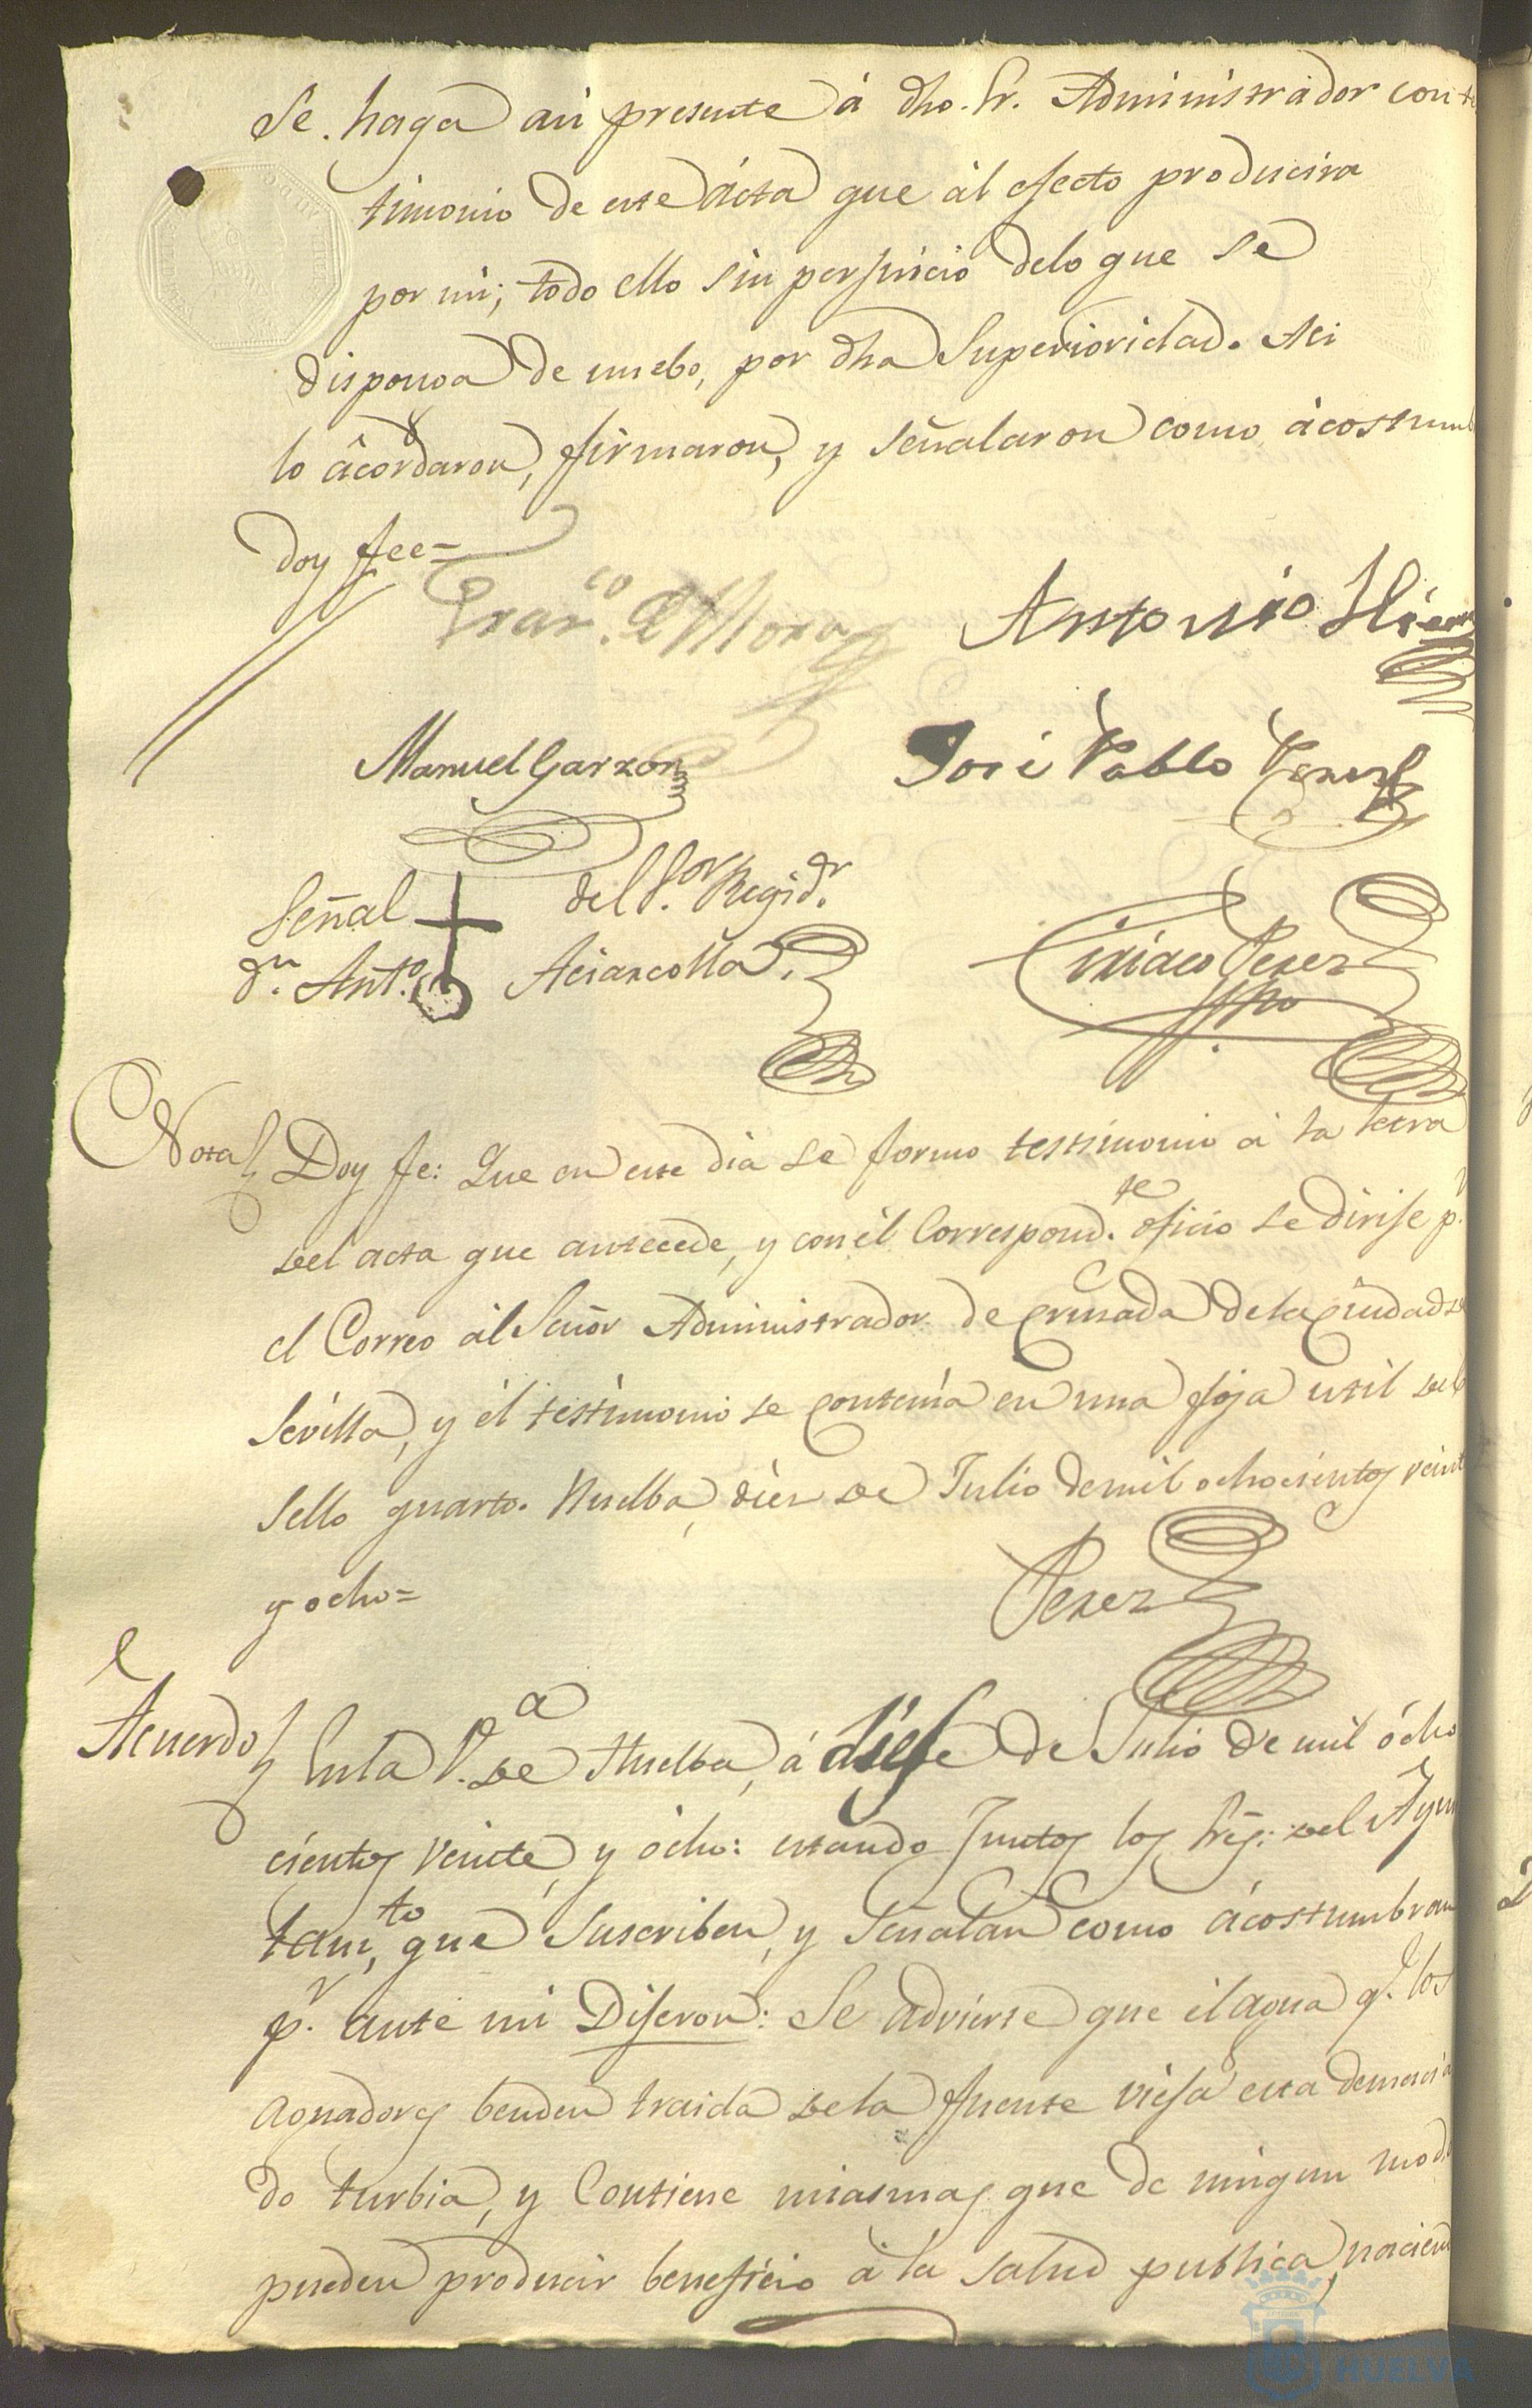 Se. haga asi presente á dho. Sr. Administrador con tes
timonio de este ácta que àl efecto producira
por mi; todo ello sin perjuicio delo que se
disponga de nuebo, por dha Superioridad. Asi
lo âcordaron, firmaron, y señalaron como àcostumb
doy fee=
Franco. de Mora
Antonio
Manuel Garzon
José Pablo Perez
Señal del Sor. Regidr.
dn. Anto. Aciancolla.
Ciriaco Perez
ssno
Nota Doy fe: Que en este dia se formo testimonio á la letra
del acta que antecede, y con él Correspondte. oficio se dirije pr.
el Correo àl Señor Administrador de Cruzada dela Ciudad de
Sevilla, y él testimonio se contenia en una foja util del
Sello quarto. Huelba, diez de Julio demil ochocientos veint
y ocho=
Perez
Acuerdo En la Va. de Huelba, á diez de Julio de mil ócho
cientos veinte, y òcho: estando Juntos los Sres: del Ayun
tamto, que Suscriben, y Señalan como ácostumbran
pr. ante mi Dijeron: Se advierte que él agua q. los
Aguadores benden traida dela fuente vieja esta demasia
do turbia, y Contiene miasmas que de ningun modo
pueden producir beneficio á la salud publica, naciend
HUELVA